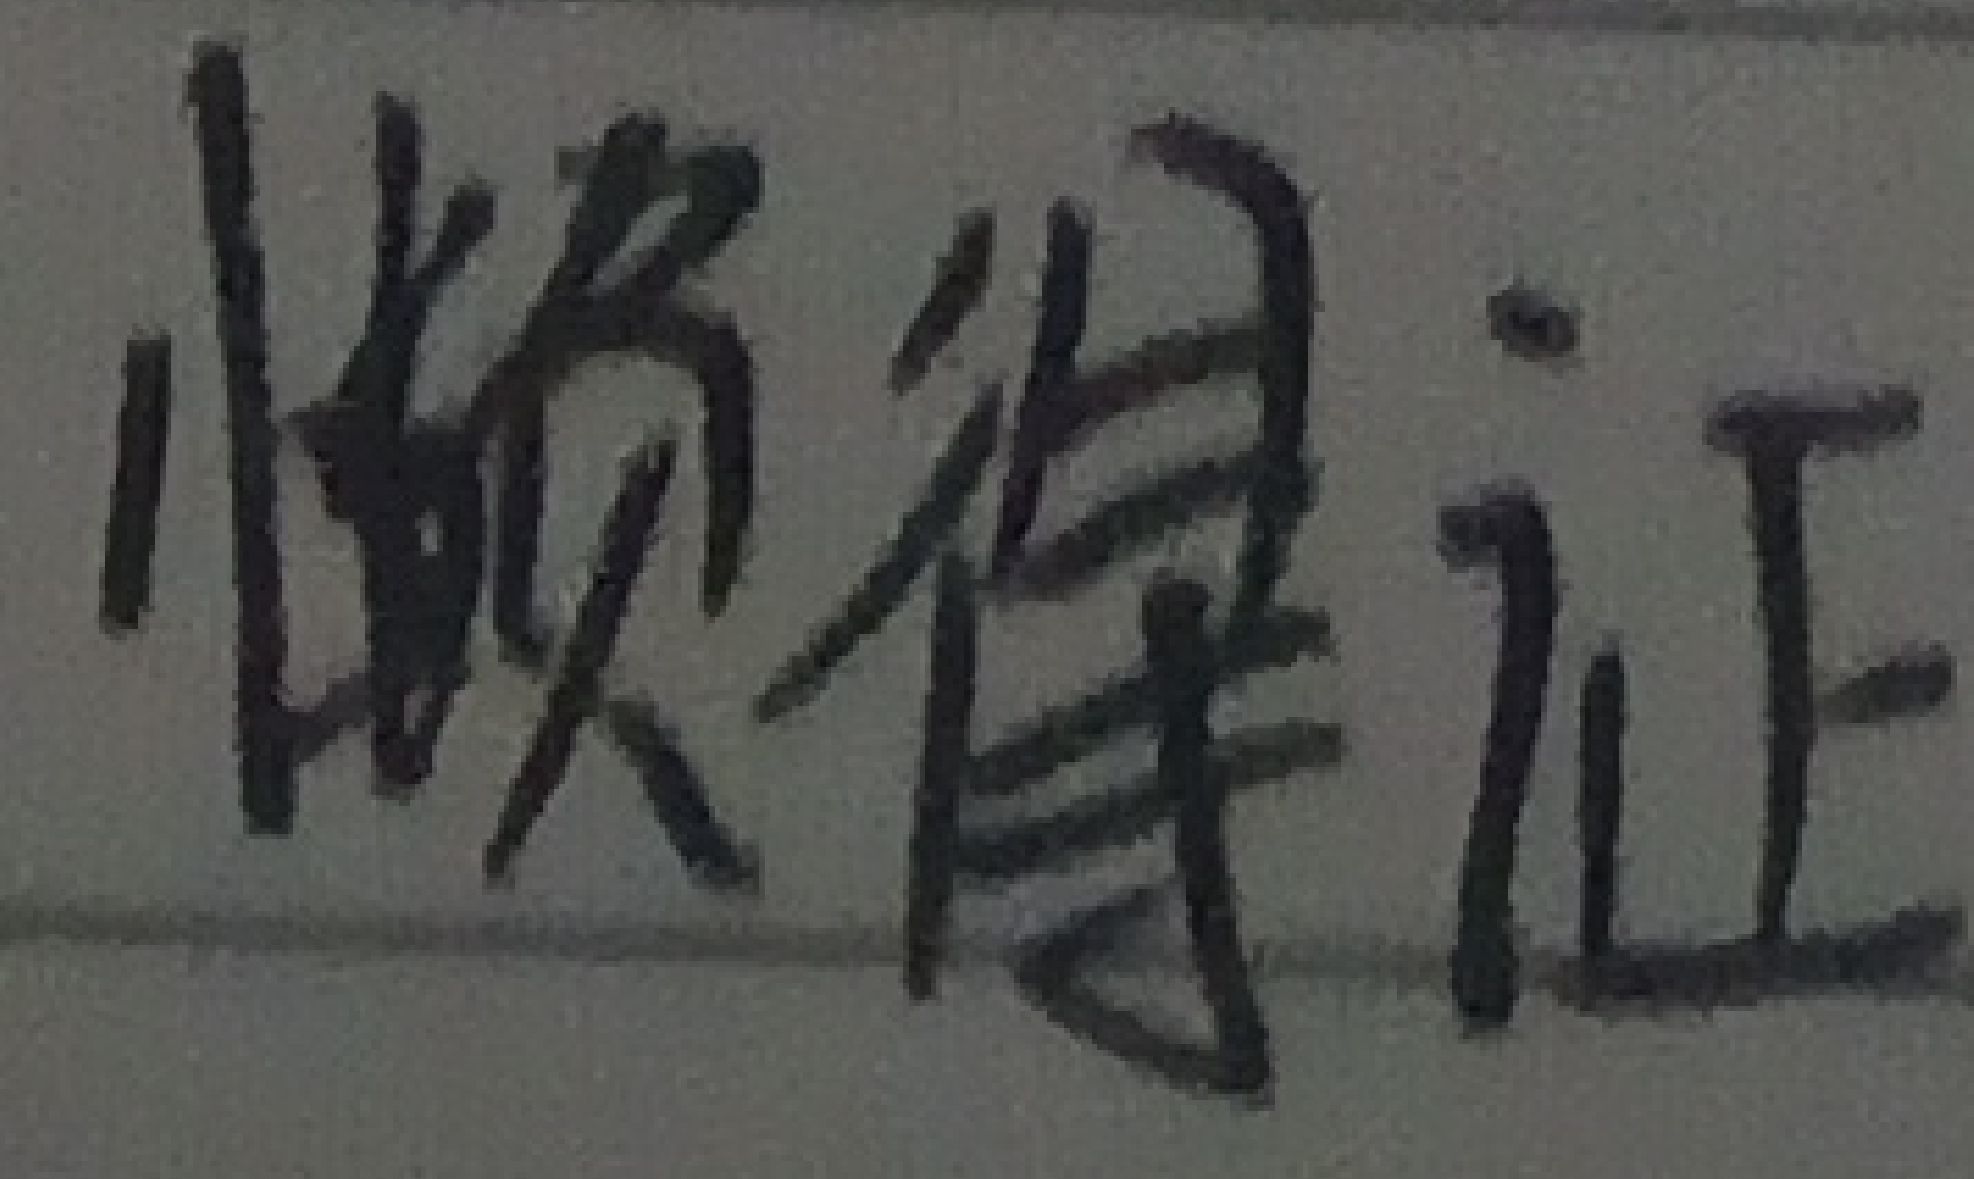 懒得证